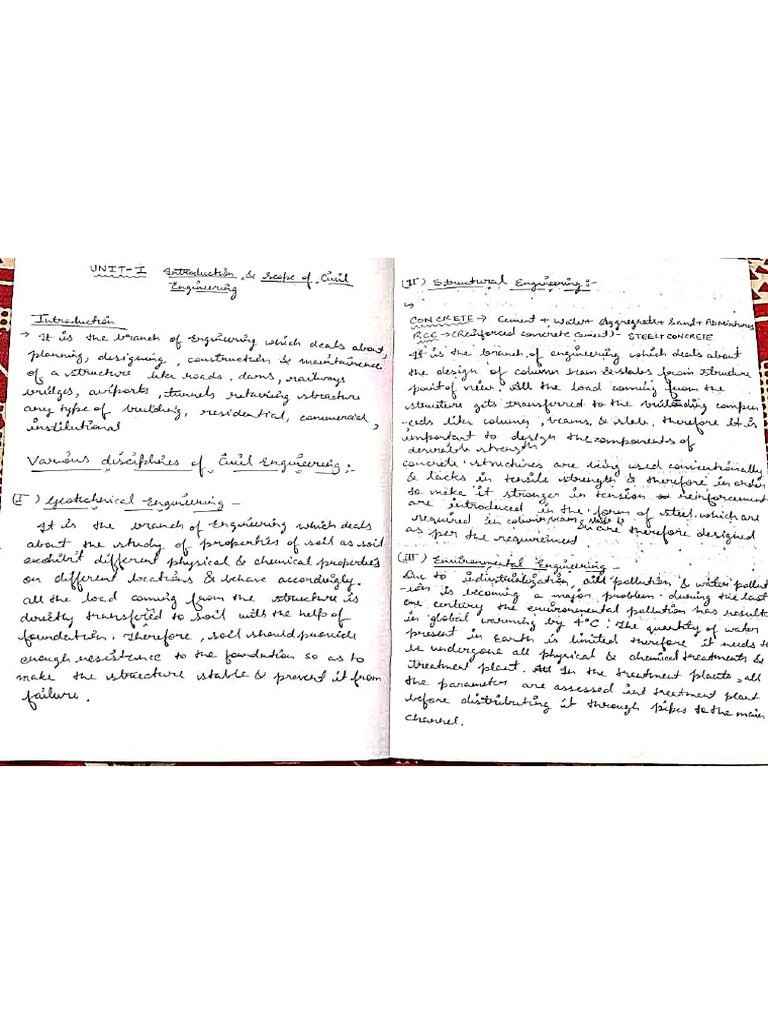 UNIT-I Introduction & Scope of Civil
Engineering
Introduction
→ It is the branch of Engineering which deals about,
planning, designing, construction & maintainence
of a structure like roads, dams, railways
bridges, airports, tunnels retaining structure
any type of building, residential, commercial,
institutional
Various disciplines of Civil Engineering:-
(I) Geotechnical Engineering -
It is the branch of Engineering which deals
about the study of properties of soil as soil
exhibit different physical & chemical properties
on different locations & behave accordingly.
all the load coming from the structure is
directly transfered to soil with the help of
foundation. Therefore, soil should provide
enough resistance to the foundation so as to
make the structure stable & prevent it from
failure.
(II) Structural Engineering:-
↳
CONCRETE → Cement + Water + Aggregate + Sand + Admixtures
RCC → (Reinforced concrete cement) - STEEL+CONCRETE
It is the branch of engineering which deals about
the design of column beam & slabs from structure
point of view. All the load coming from the
structure gets transferred to the building compon
-ents like column, beams, & slab. therefore it is
important to design the components of
desirable strength
concrete structures are being used conventionally
& lacks in tensile strength & therefore in order
to make it stronger in tension reinforcement
are introduced in the form of steel which are
required in column, beam & slab & are therefore designed
as per the requirement
(III) Environmental Engineering -
Due to industrialization, air pollution & water pollut
-ion is becoming a major problem. during the last
one century the environmental pollution has result
in global warming by 4°C. The quantity of water
present in Earth is limited therefore it needs to
be undergone all physical & chemical treatments &
treatment plant. In the treatment plants, all
the parameter are assessed in treatment plant
before distributing it through pipes to the main
channel.